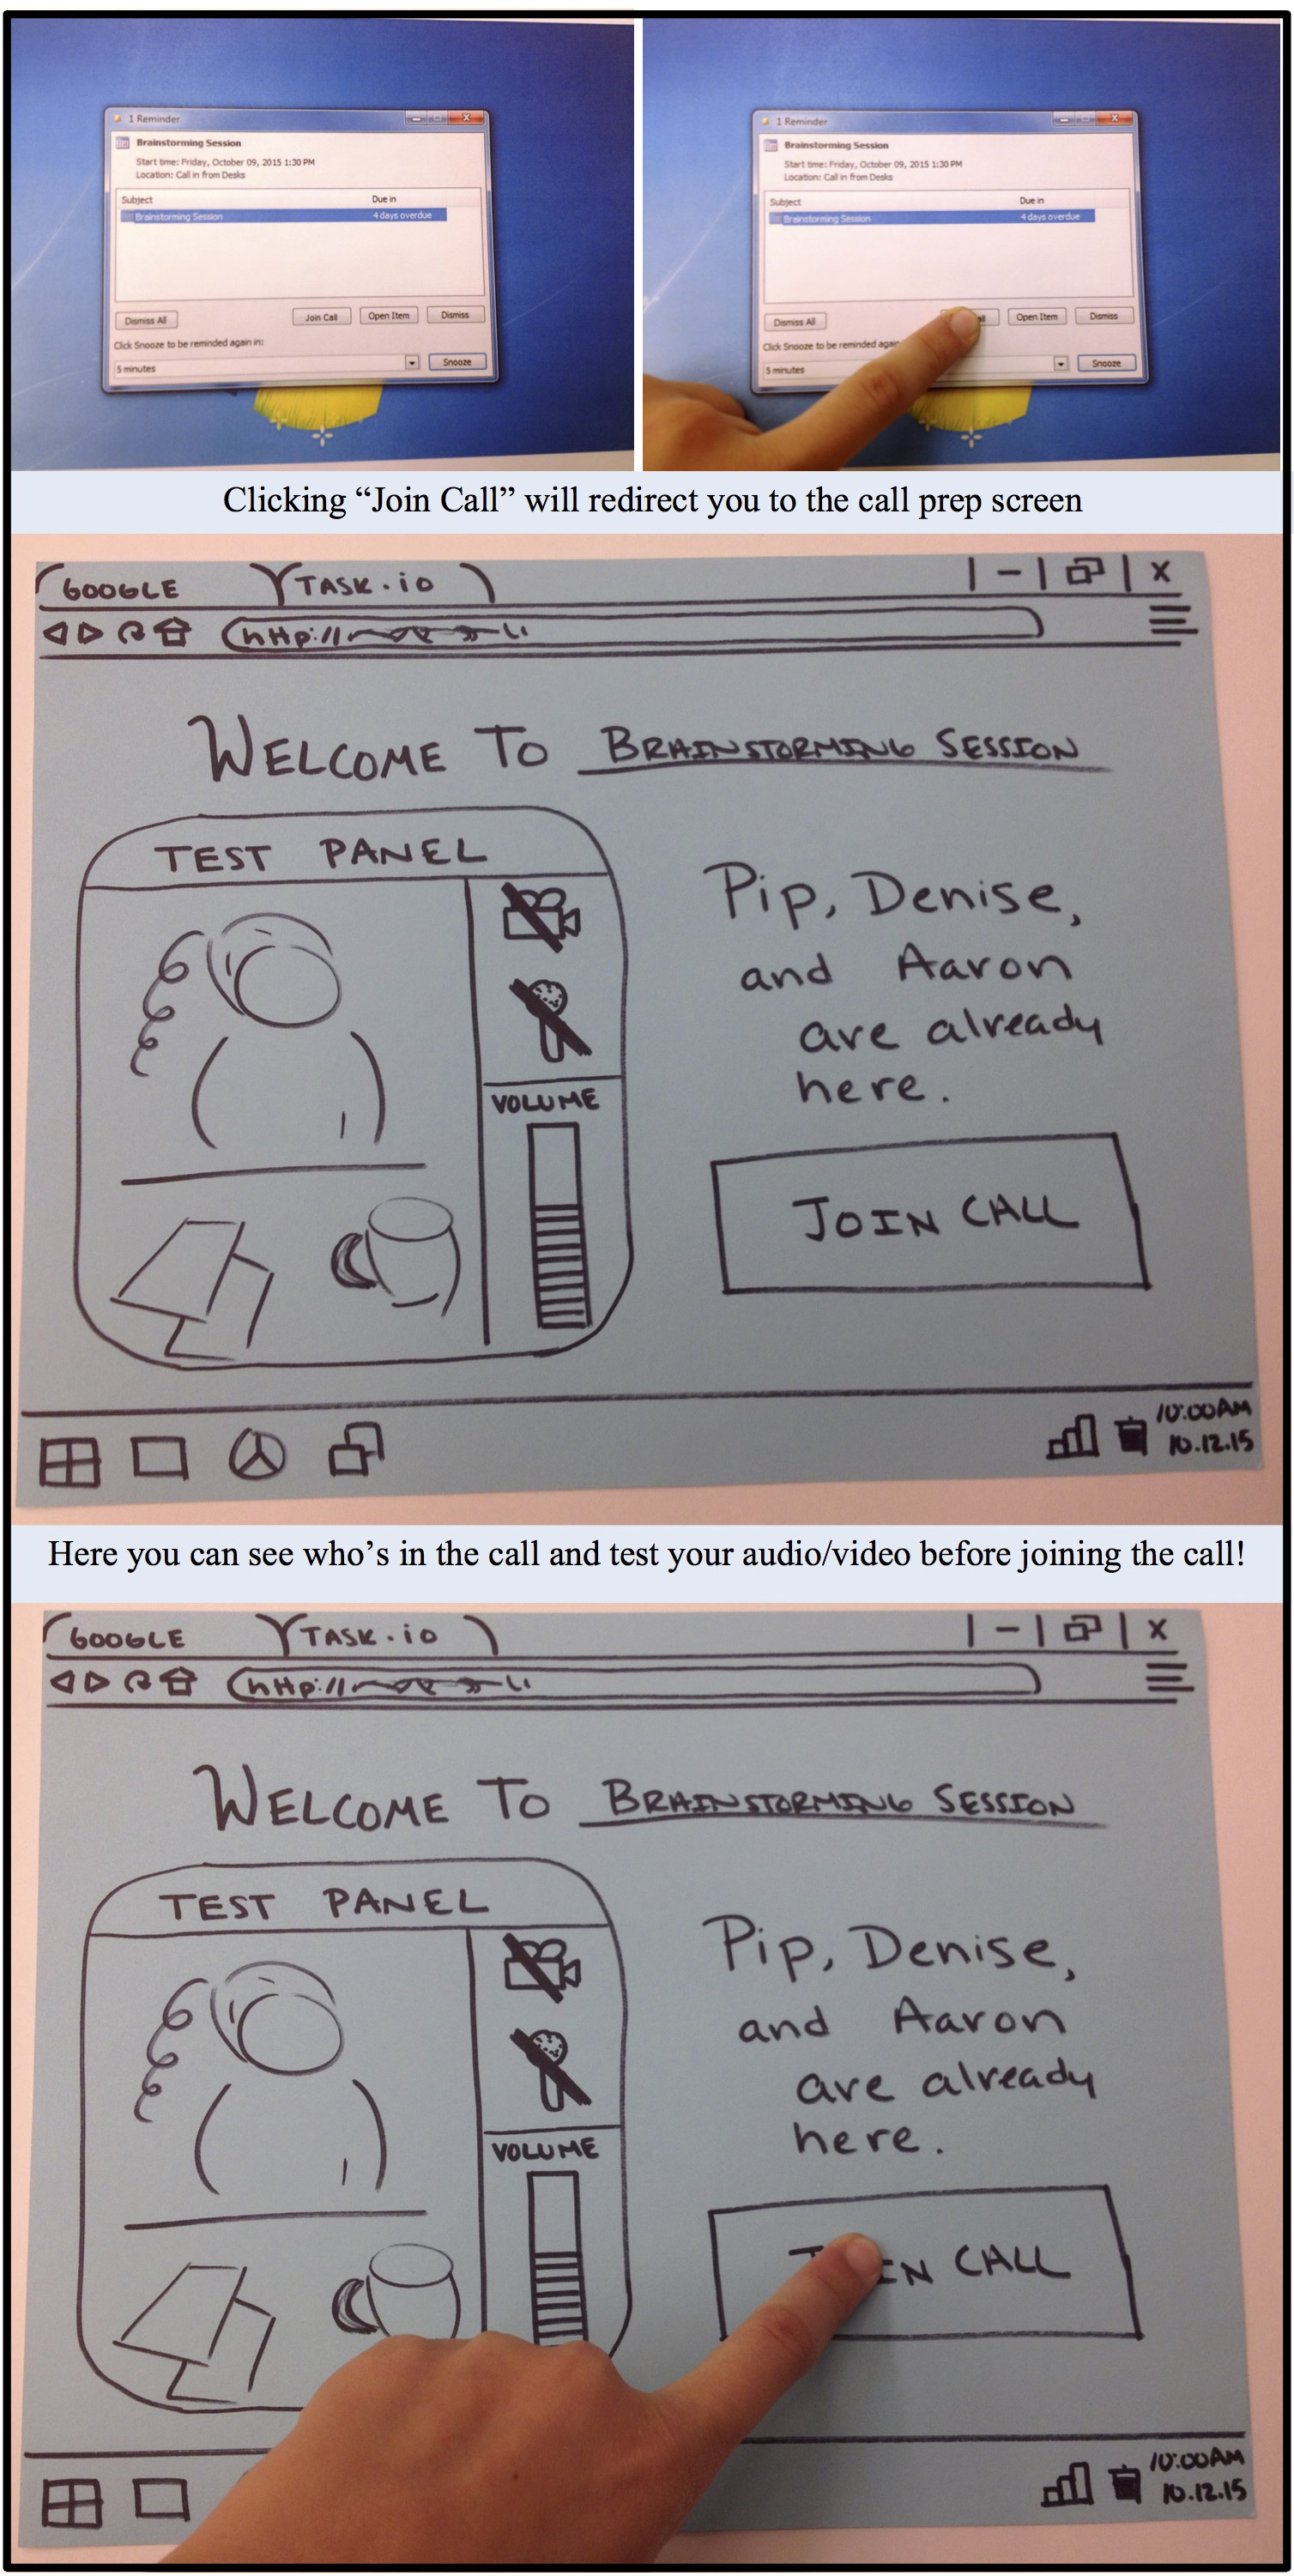 1 Reminder
Brainstorming Session
Start time: Friday, October 09, 2015 1:30 PM
Location: Call in from Desks
Subject Due in
Brainstorming Session 4 days overdue
Dismiss All Join Call Open Item Dismiss
Click Snooze to be reminded again in:
5 minutes Snooze
1 Reminder
Brainstorming Session
Start time: Friday, October 09, 2015 1:30 PM
Location: Call in from Desks
Subject Due in
Brainstorming Session 4 days overdue
Dismiss All Open Item Dismiss
Click Snooze to be reminded again
5 minutes Snooze
Clicking “Join Call” will redirect you to the call prep screen
GOOGLE TASK.io
http://
WELCOME TO BRAINSTORMING SESSION
TEST PANEL
VOLUME
Pip, Denise,
and Aaron
are already
here.
JOIN CALL
10:00AM
10.12.15
Here you can see who’s in the call and test your audio/video before joining the call!
GOOGLE TASK.io
http://
WELCOME TO BRAINSTORMING SESSION
TEST PANEL
VOLUME
Pip, Denise,
and Aaron
are already
here.
CALL
10:00AM
10.12.15